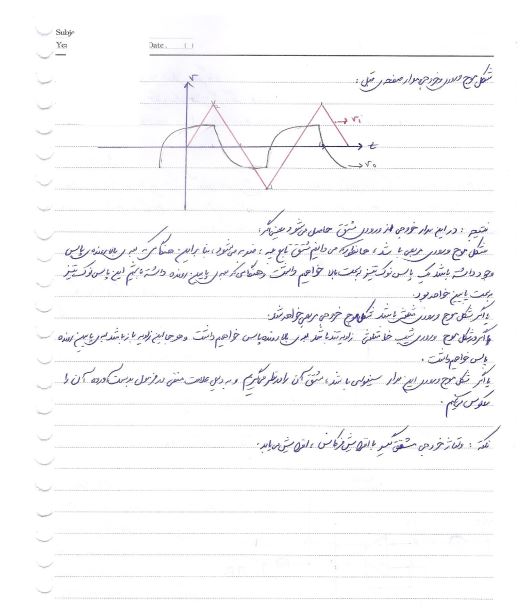 Subje
Ye:
Date. ( )
شکل موج ورودی و خروجی مدار صفحه‌ی قبل :
v
v₁
t
v₀
نتیجه : در این مدار خروجی از ورودی مشتق حاصل می‌شود
شکل موج ورودی مربعی باشد، همانطور که می‌دانیم مشتق تابع پله، ضربه می‌شود، بنابراین هنگامی که لبه‌ی بالارونده‌ی پالس
وجود داشته باشد یک پالس نوک تیز به سمت بالا خواهیم داشت و هنگامی که لبه‌ی پایین رونده داشته باشیم این پالس نوک تیز
به سمت پایین خواهد بود.
اگر شکل موج ورودی مثلثی باشد شکل موج خروجی مربعی خواهد شد.
اگر در شکل موج ورودی شیب خط مثلثی زاویه تند باشد لبه‌ی بالارونده پالس خواهیم داشت و هر جا این زاویه باز باشد لبه‌ی پایین رونده
پالس خواهیم داشت.
اگر شکل موج ورودی این مدار سینوسی باشد، مشتق آن را در نظر می‌گیریم و به دلیل علامت منفی در فرمول بدست آمده آن را
معکوس می‌کنیم.
نکته : ولتاژ خروجی مشتق گیر با افزایش فرکانس، افزایش می‌یابد.